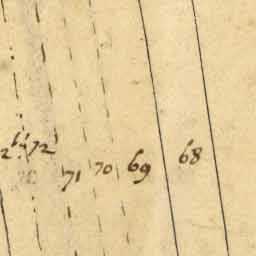 72 71 70 69 68